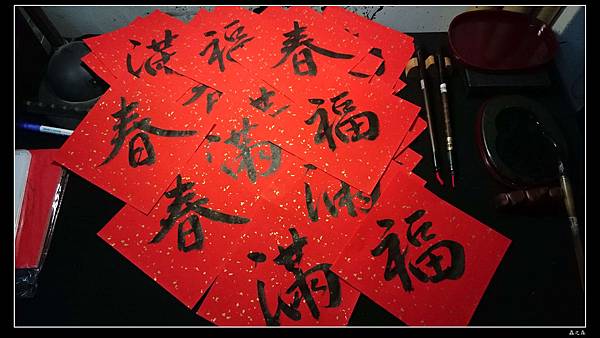 滿
福
春
春
滿
福
春
滿
滿
福